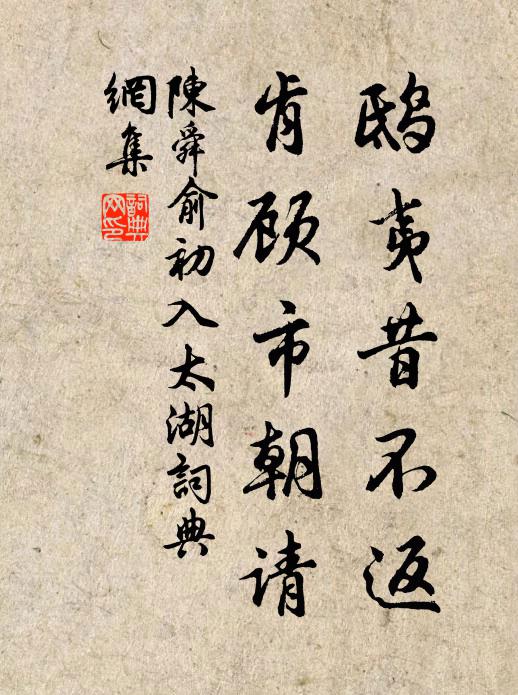 鸱夷昔不返
肯顾市朝请
陳舜俞初入太湖詞典
網集
詞典網印